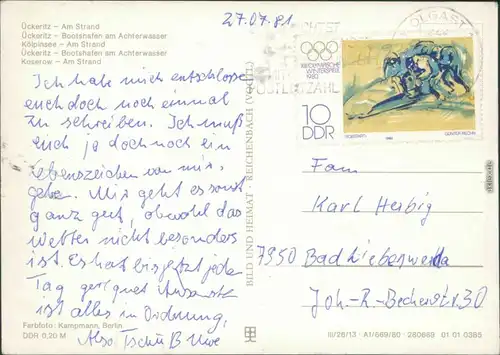 Ückeritz – Am Strand
Ückeritz – Bootshafen am Achterwasser
Kölpinsee – Am Strand
Ückeritz – Bootshafen am Achterwasser
Koserow – Am Strand
27.07.81
Ich habe mich entschlossen
euch doch noch einmal
zu schreiben. Ich muß
euch ja doch noch ein
Lebenszeichen von mir
geben. Mir geht es sonst
ganz gut, obwohl das
Wetter nicht besonders
ist. Es hat bis jetzt jeden
Tag geregnet Ansonsten
ist alles in Ordnung,
Also Tschüß Uwe
Farbfoto: Kampmann, Berlin
DDR 0,20 M
BILD UND HEIMAT REICHENBACH (VOGTL)
WOLGAST
XIII. OLYMPISCHE
WINTERSPIELE
1980
10
DDR
1980
Fam
Karl Herbig
7950 Bad Liebenwerda
Joh.-R.-Becherstr. 30
III/26/13 · A1/669/80 · 280669 01 01 0385